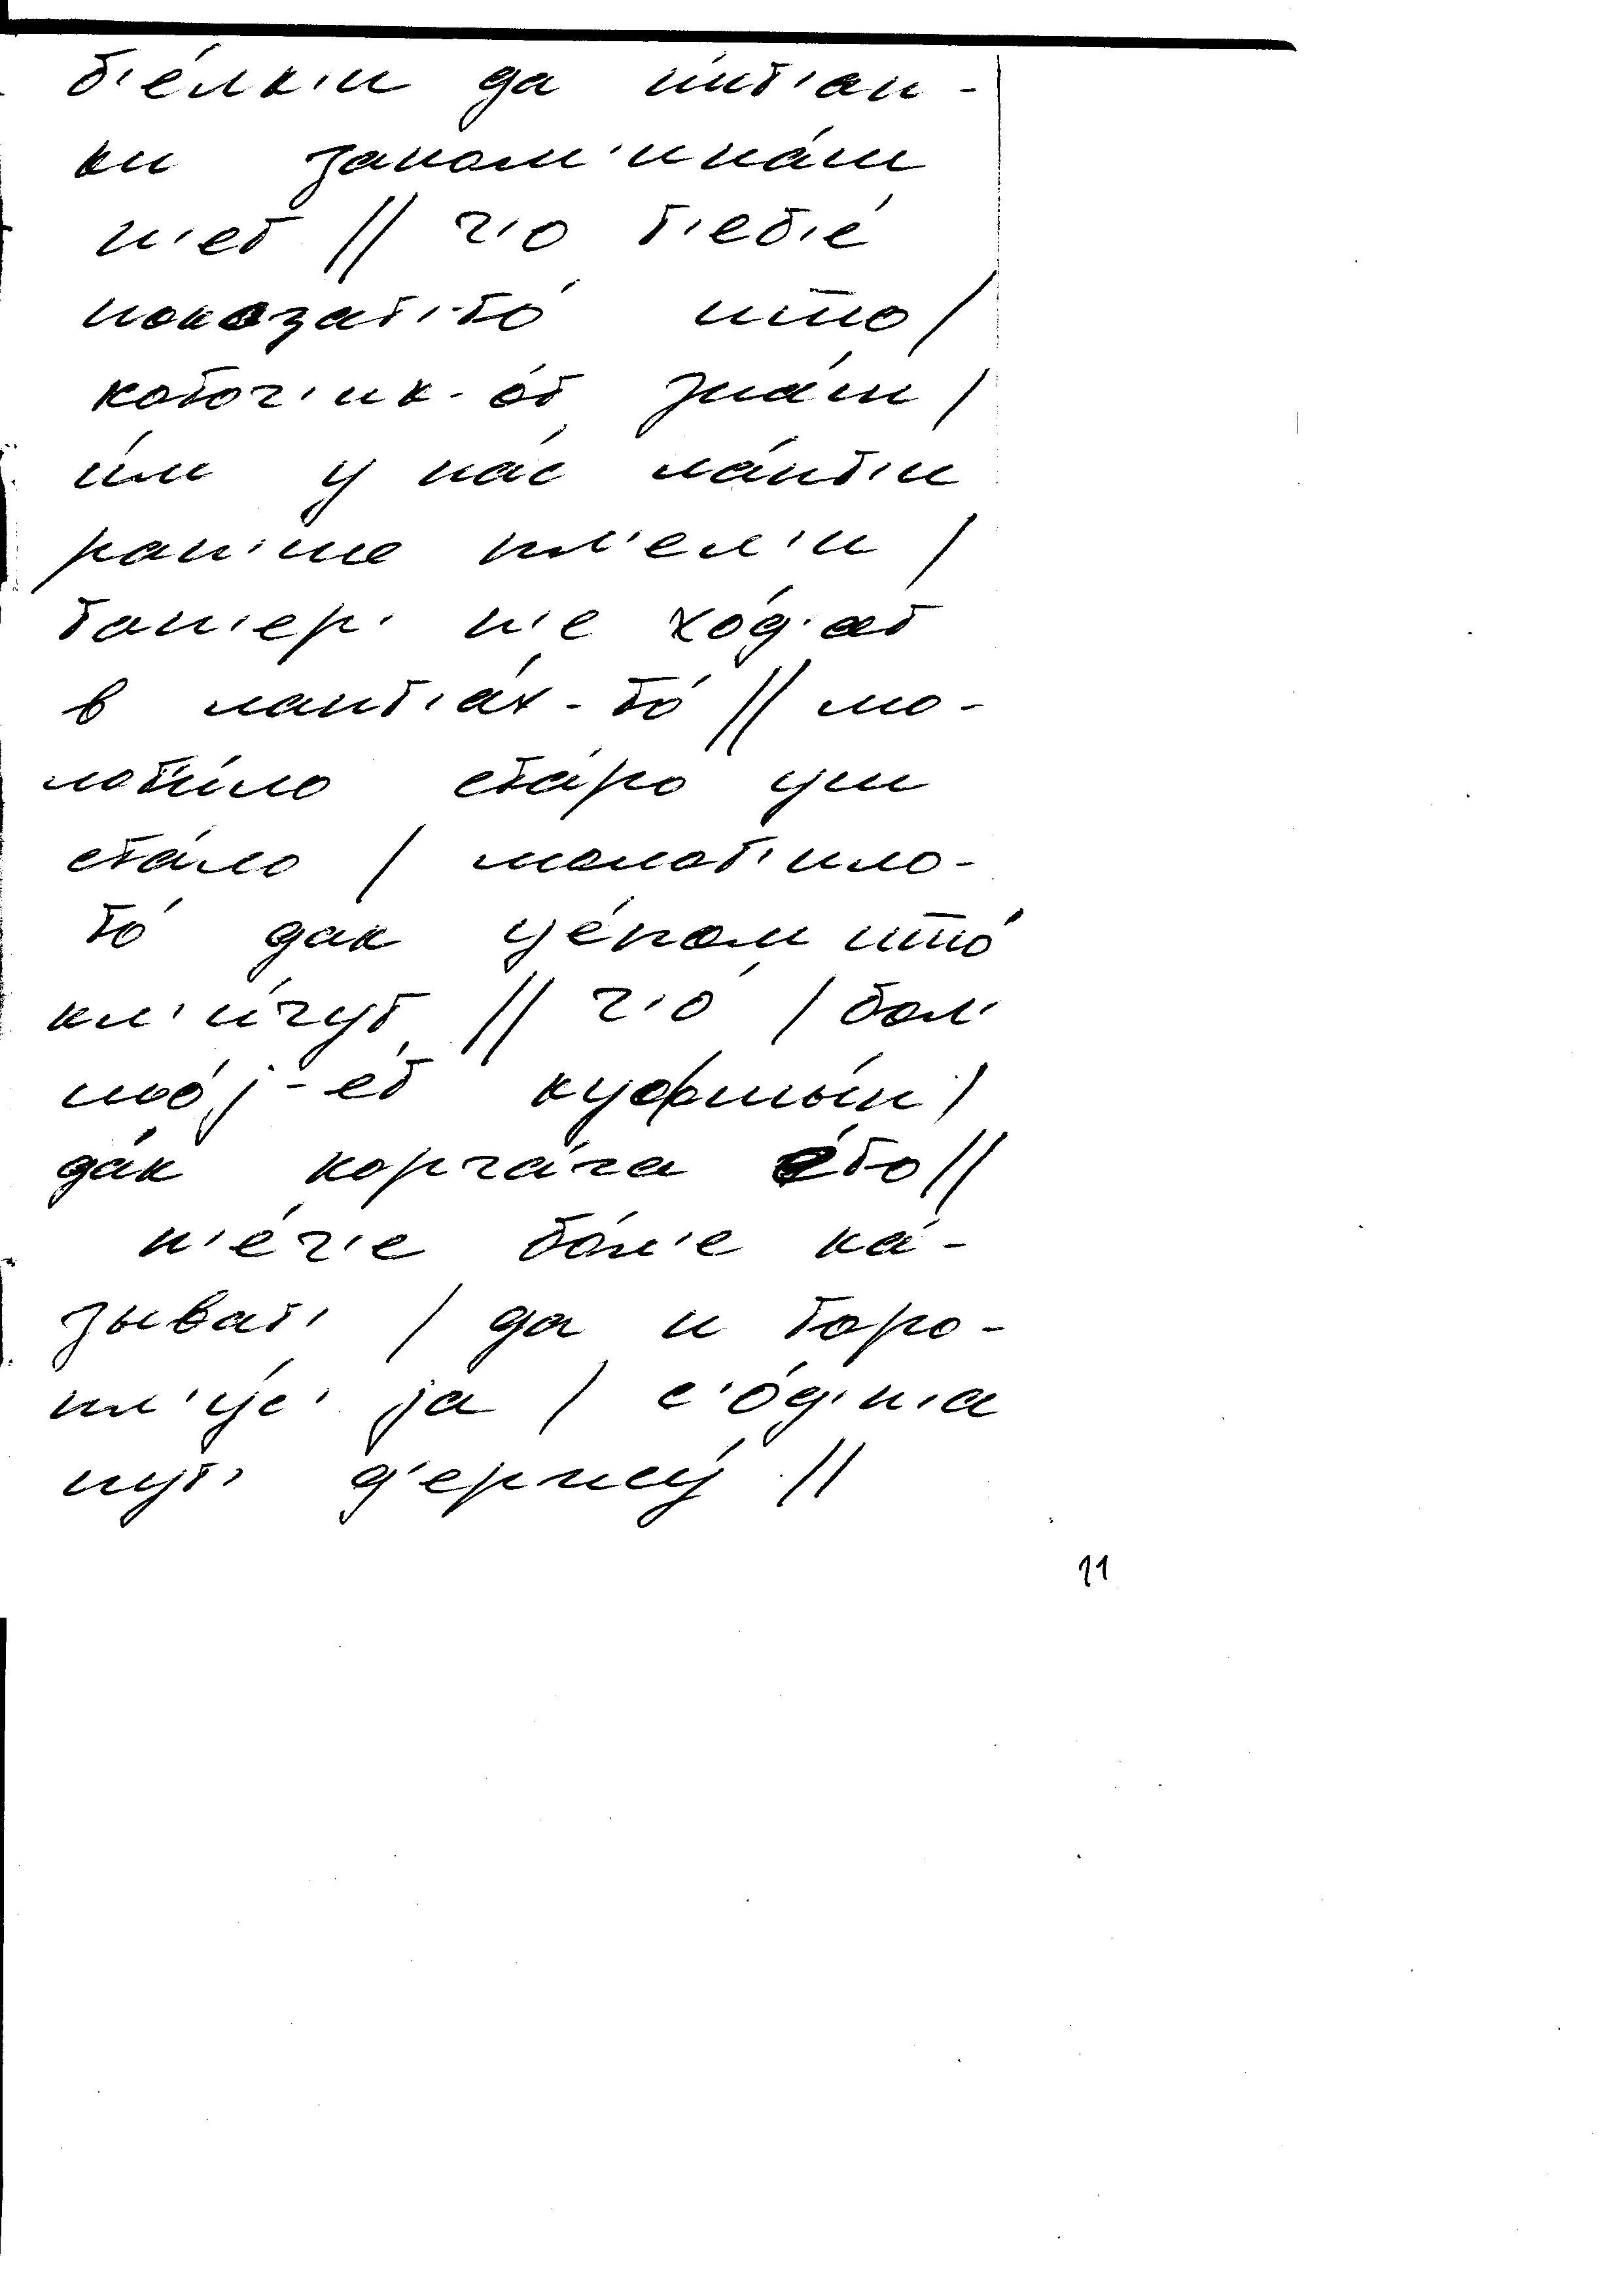 б'е́лк'и да
ки запом'ина́ш
н'ет // ч'о т'еб'е́
показат'-то́ што /
коточ'ик-о́т зна́ш /
и́м у на́с ла́пт'и
ран'ше пл'ел'и /
топ'ер' н'е хо́д'ат
в лапт'а́х-то́ // мо-
лот'и́ло ста́ро уш
ста́ло / молот'ило-
то́ дак це́пом што́
кл'и́чут // ч'о́ / бол'
шо́j-ет куфшы́н /
да́к корча́га э́то //
н'е́ч'е бо́л'е ка́-
зыват' / да и торо-
пл'у́с' jа / с'о́д'н'а
пут' д'ержу́ //
11